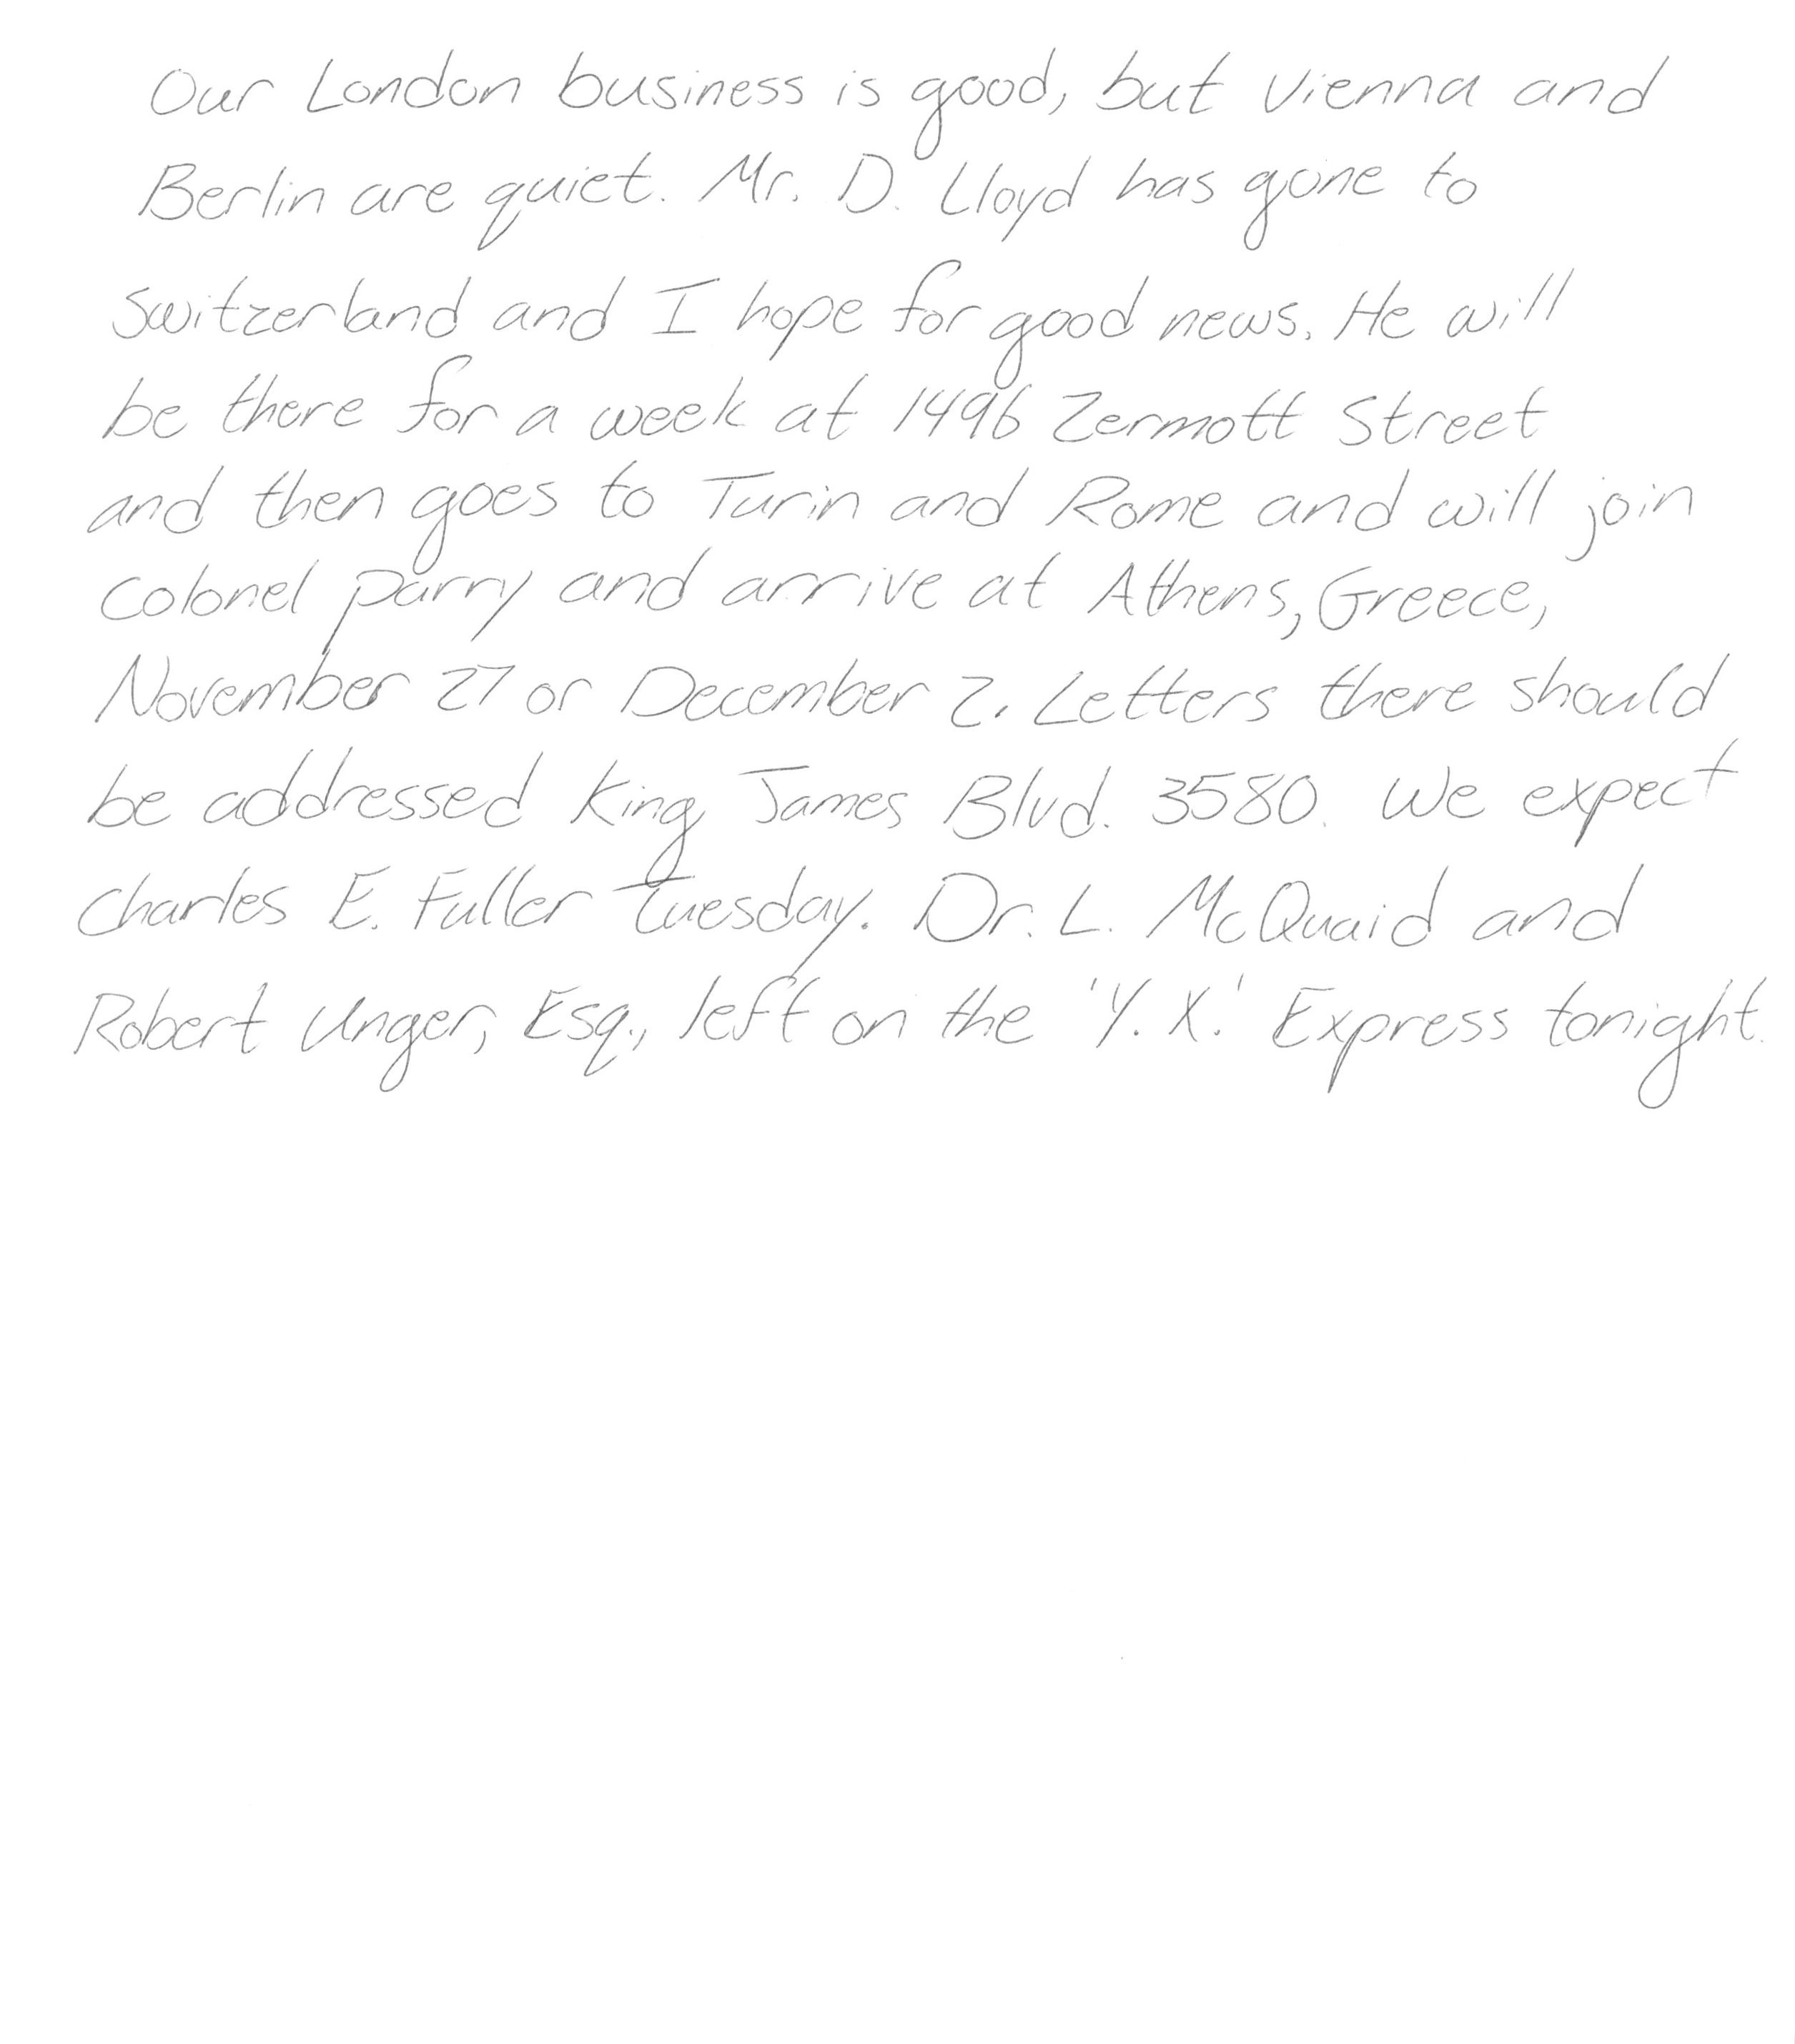 Our London business is good, but Vienna and
Berlin are quiet. Mr. D. Lloyd has gone to
Switzerland and I hope for good news. He will
be there for a week at 1496 Zermott Street
and then goes to Turin and Rome and will join
Colonel Parry and arrive at Athens, Greece,
November 27 or December 2. Letters there should
be addressed King James Blvd. 3580. We expect
Charles E. Fuller Tuesday. Dr. L. McQuaid and
Robert Unger, Esq., left on the 'Y. X.' Express tonight.